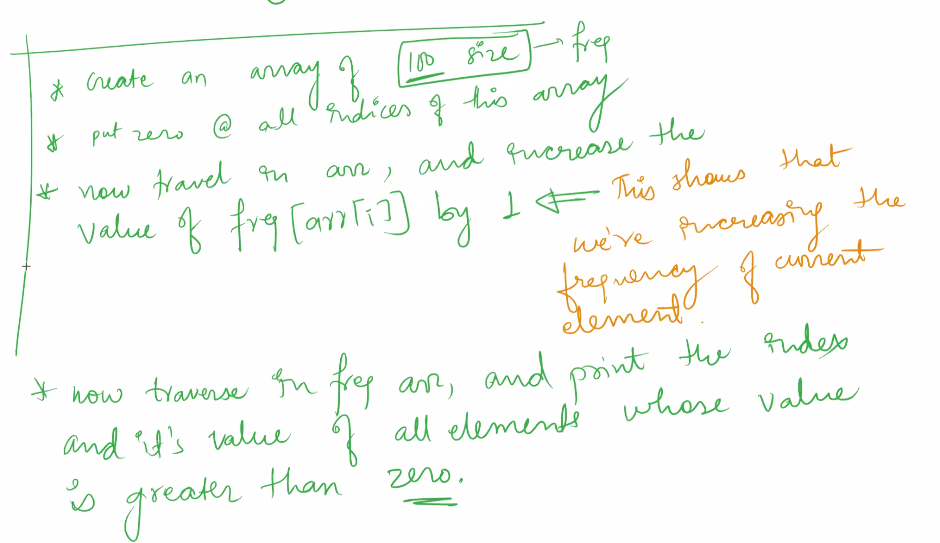 * Create an array of 100 size → freq
* put zero @ all indices of this array
* now travel in arr, and increase the
value of freq [arr[i]] by 1 ⇐ This shows that
we've increasing the
frequency of current
element.
* now traverse in freq arr, and print the index
and it's value of all elements whose value
is greater than zero.